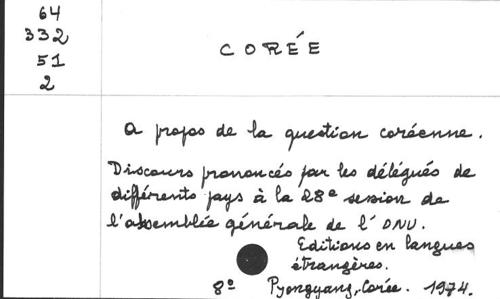 64
332
51
2
CORÉE
A propos de la question coréenne.
Discours prononcés par les délégués de
différents pays à la 28e session de
l'assemblée générale de l'ONU.
Editions en langues
étrangères.
8º Pyongyang, Corée. 1974.